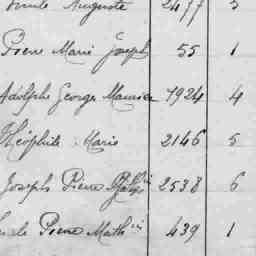 Emile Auguste 2477 5
Pierre Marie Joseph 55 1
Adolphe Georges Maurice 7924 4
Théophile Marie 2146 5
Joseph Pierre 2538 6
Pierre Math in 439 1